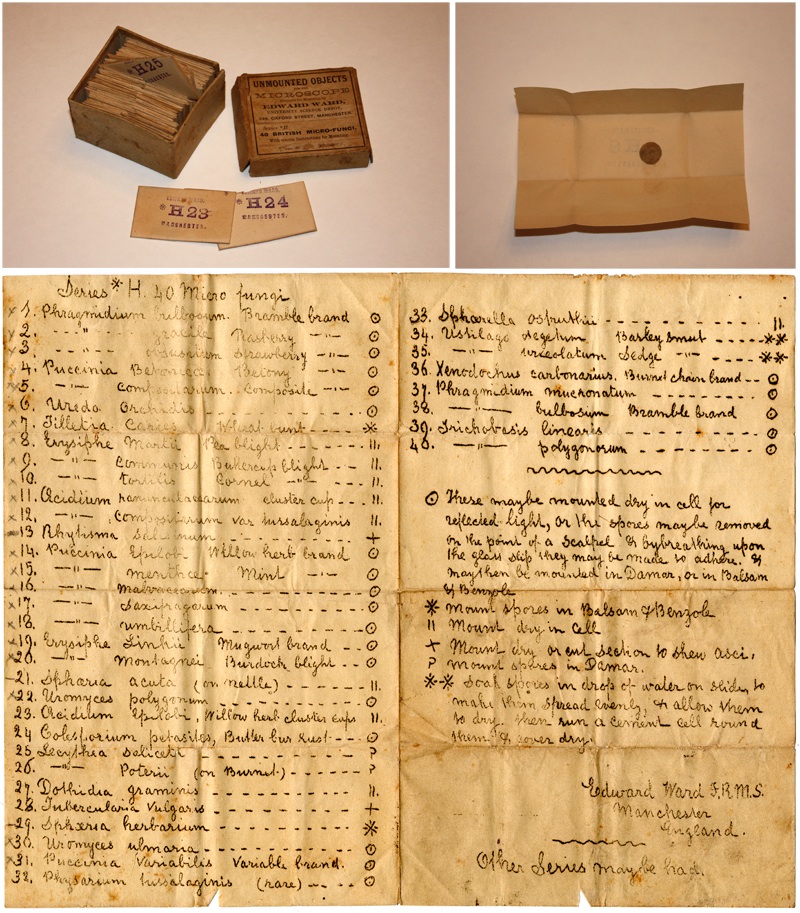 *H25
UNMOUNTED OBJECTS
FOR THE
MICROSCOPE
EDWARD WARD,
249, OXFORD STREET, MANCHESTER.
Series *H
40 BRITISH MICRO-FUNGI,
*H23
MANCHESTER.
*H24
MANCHESTER.
Series * H. 40 Micro fungi
x 1. Phragmidium bulbosum. Bramble brand ⊙
x 2. —"— gracile Rasberry —"— ⊙
x 3. —"— obtusatum Strawberry —"— ⊙
x 4. Puccinia Betonicae Betony —"— ⊙
x 5. —"— Compositarum. Composite —"— ⊙
x 6. Uredo Orchidis ⊙
x 7. Tilletia Caries Wheat bunt ※
x 8. Erysiphe Martii Pea blight 11.
x 9. —"— Communis Buttercup blight 11.
x 10. —"— tortilis Cornel —"— 11.
x 11. Œcidium ranunculacearum cluster cup 11.
x 12. —"— Compositarum var tussalaginis 11.
x 13 Rhytisma salicinum +
x 14. Puccinia Epilobi Willow herb brand ⊙
x 15. —"— menthae Mint —"— ⊙
16. —"— malvacearum ⊙
x 17. —"— Saxifragarum ⊙
x 18. —"— umbillifera ⊙
x 19. Erysiphe Linkii Mugwort brand ⊙
x 20. —"— Montagnei Burdock blight ⊙
– 21. Sphæria acuta (on nettle) 11.
x 22. Uromyces polygonum ⊙
23. Œcidium Epilobi, Willow herb cluster cups 11.
24 Colesporium petasites, Butter bur rust ⊙
25 Lecythia saliceti ?
26. —"— Poterii (on Burnet) ?
27. Dothidia graminis 11.
28. Tubercularia vulgaris +
– 29. Sphæria herbarium ※
x 30. Uromyces ulmaria ⊙
x 31. Puccinia Variabilis Variable brand. ⊙
32. Physarium tussalaginis (rare) ⊙
33. Sphærella ostruthii 11.
34. Ustilago segetum Barley smut ※※
35. —"— urceolatum Sedge —"— ※※
36. Xenodochus carbonarius. Burnet chain brand ⊙
37. Phragmidium mucronatum ⊙
38. —"— bulbosum Bramble brand ⊙
39. Trichobasis linearis ⊙
40. —"— polygonorum ⊙
⊙ These may be mounted dry in cell for
reflected light, or the spores may be removed
on the point of a scalpel & by breathing upon
the glass slip they may be made to adhere. &
may then be mounted in Damar, or in Balsam
& Benzole
※ Mount spores in Balsam & Benzole
11 Mount dry in cell
+ Mount dry or cut section to shew asci.
? mount spores in Damar.
※-※ Soak spores in drop of water on slide, to
make them spread evenly, & allow them
to dry. then run a cement cell round
them & cover dry.
Edward Ward F.R.M.S.
Manchester
England.
Other Series may be had.